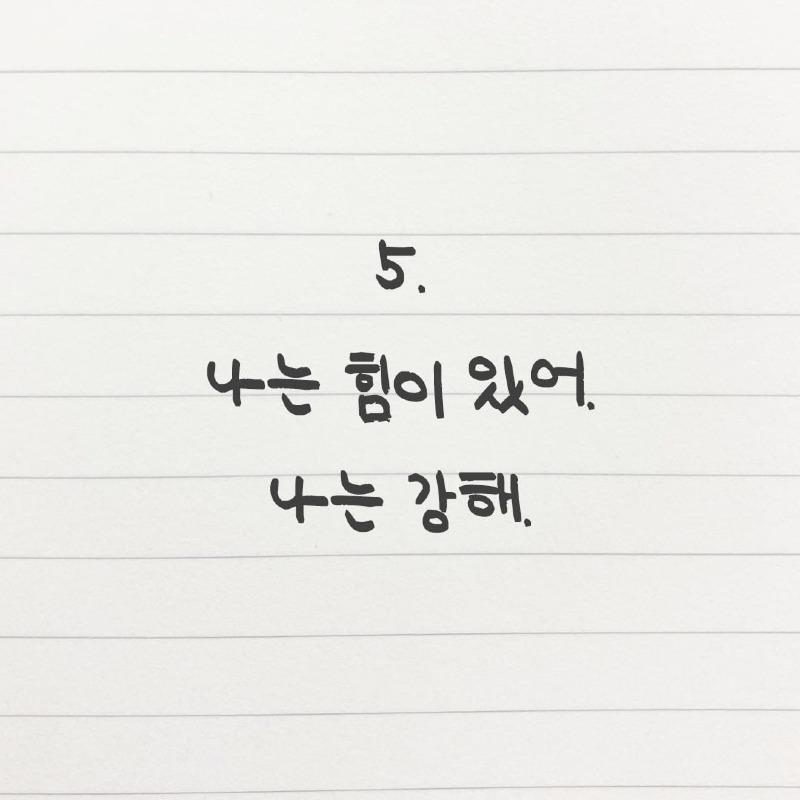 5.
나는 힘이 있어.
나는 강해.